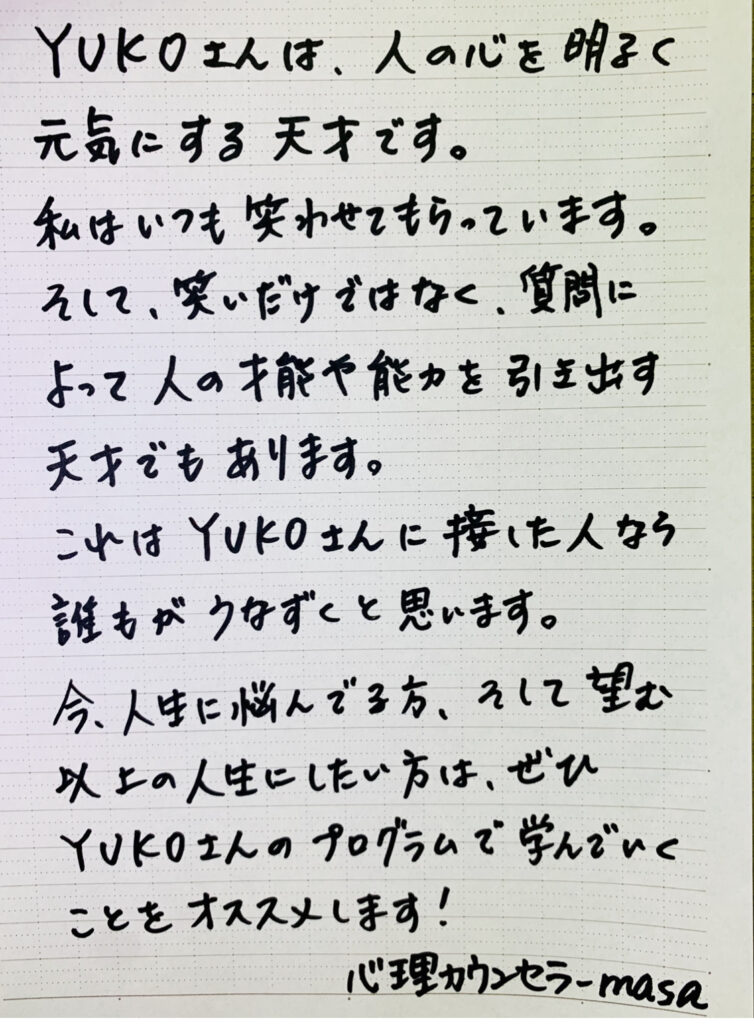 YUKOさんは、人の心を明るく
元気にする天才です。
私はいつも笑わせてもらっています。
そして、笑いだけではなく、質問に
よって人の才能や能力を引き出す
天才でもあります。
これはYUKOさんに接した人なら
誰もがうなずくと思います。
今、人生に悩んでる方、そして望む
以上の人生にしたい方は、ぜひ
YUKOさんのプログラムで学んでいく
ことをオススメします!
心理カウンセラーmasa